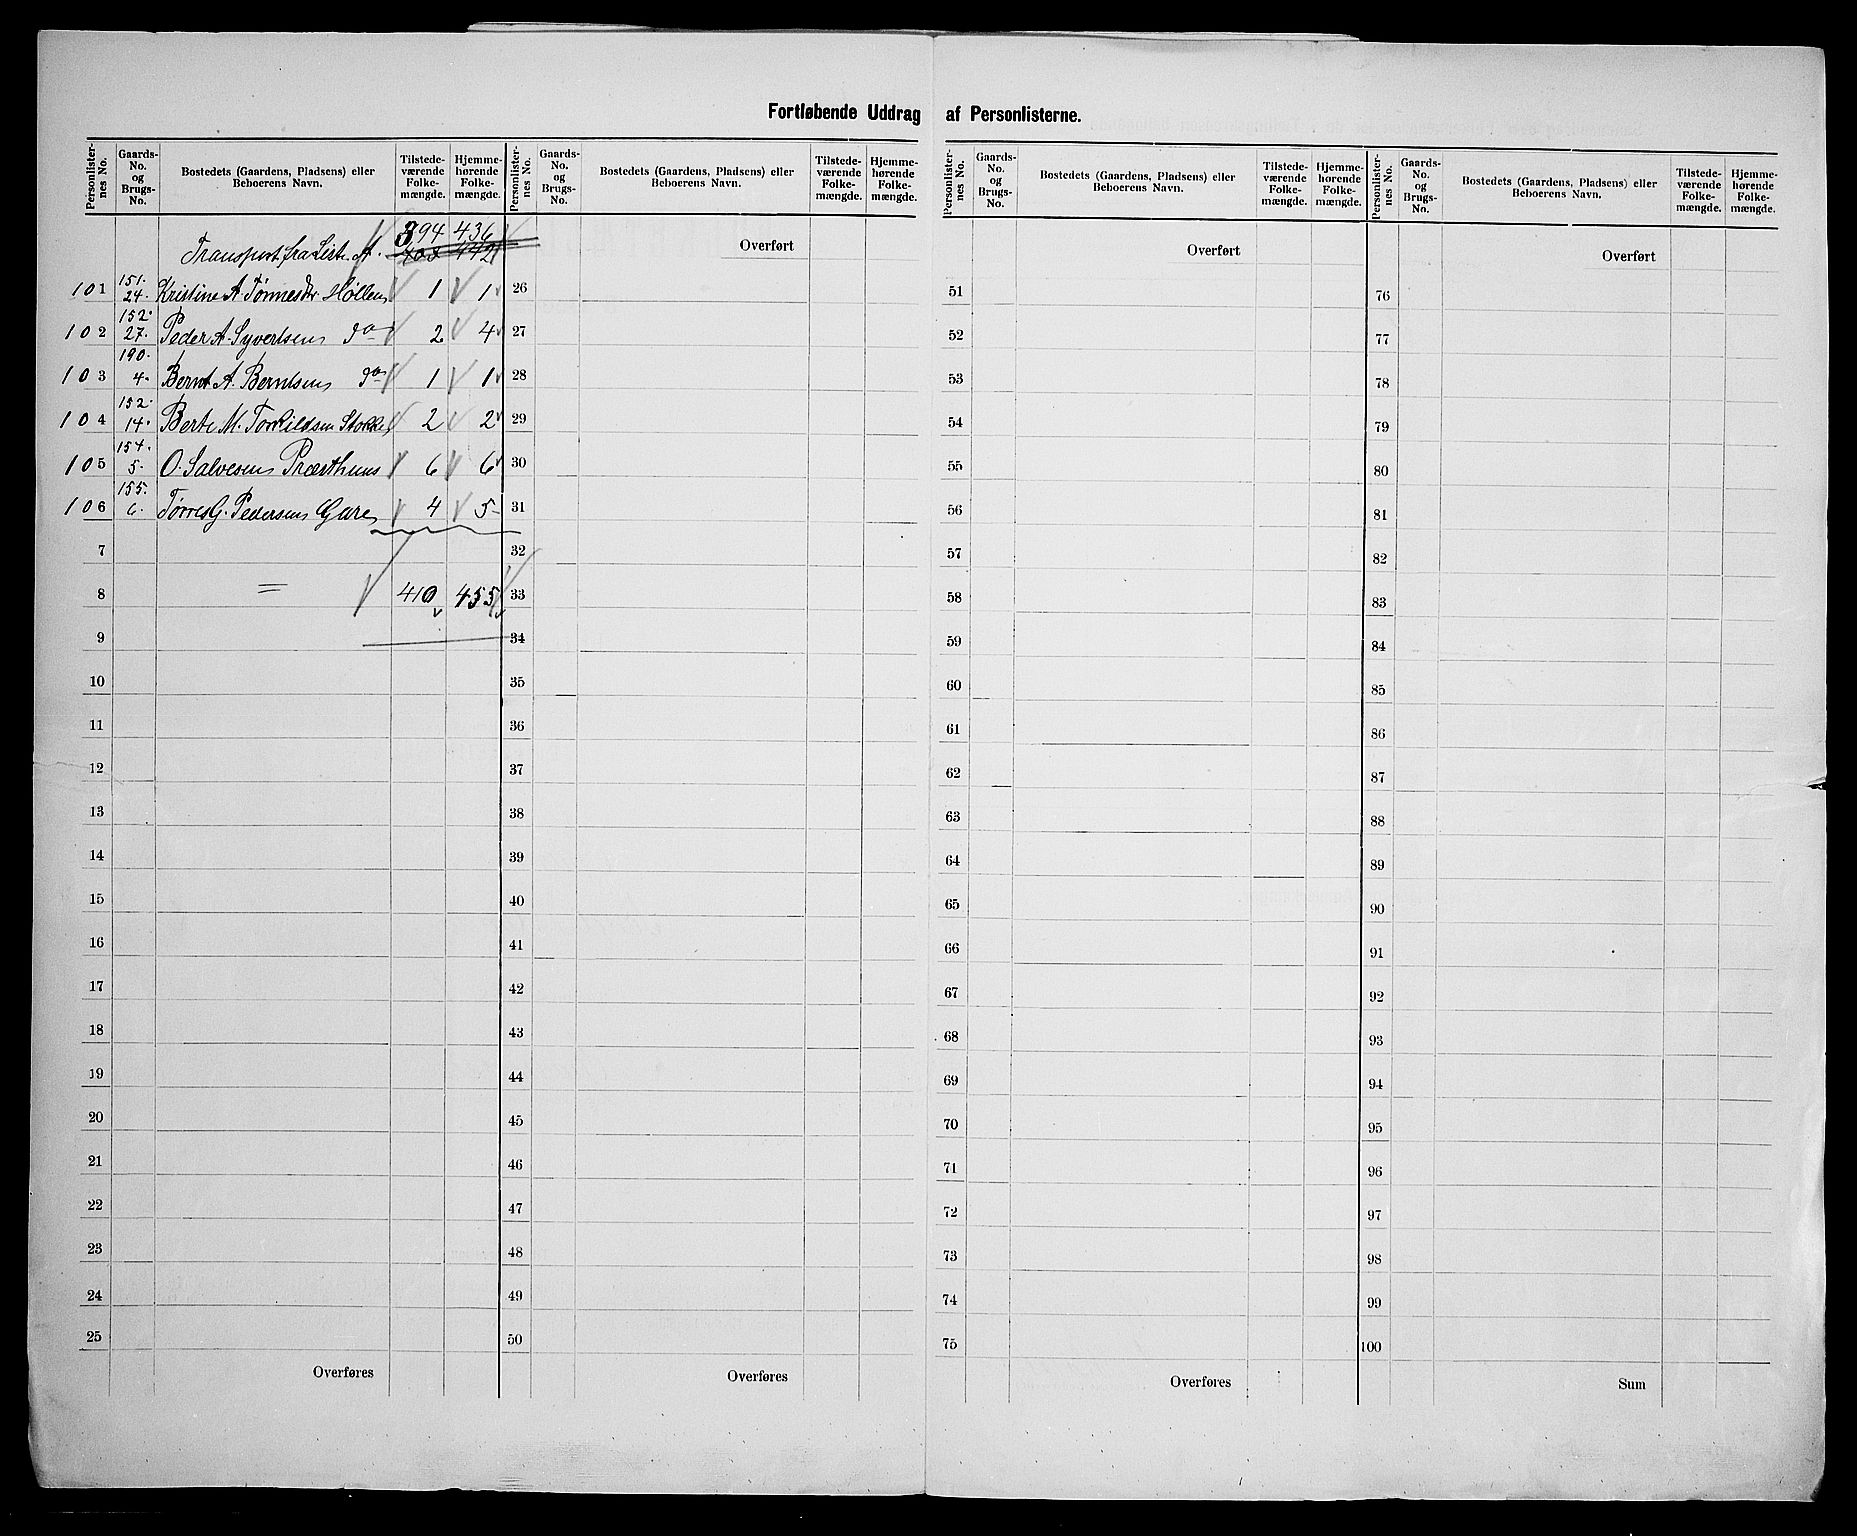 Fortløbende Uddrag af Personlisterne.
Personlister-nes No. | Gaards-No. og Brugs-No. | Bostedets (Gaardens, Pladsens) eller Beboerens Navn. | Tilstede-værende Folke-mængde. | Hjemme-hørende Folke-mængde.
Transport fra List. A. 394 436
442
101 151. 24. Kristine A. Tønnesdr Høllen 1 1
102 152. 27. Peder A. Syvertsen do 2 4
103 190. 4. Bernt A. Berntsen do 1 1
104 152. 14. Berte M. Torkildsen Stokke 2 2
105 154. 5. O. Salvesen Præsthuus 6 6
106 155. 6. Tørres G. Pedersen Gare 4 5
7
8 = 410 455
9
10
11
12
13
14
15
16
17
18
19
20
21
22
23
24
25
Overføres
Personlister-nes No. | Gaards-No. og Brugs-No. | Bostedets (Gaardens, Pladsens) eller Beboerens Navn. | Tilstede-værende Folke-mængde. | Hjemme-hørende Folke-mængde.
Overført
26
27
28
29
30
31
32
33
34
35
36
37
38
39
40
41
42
43
44
45
46
47
48
49
50
Overføres
Personlister-nes No. | Gaards-No. og Brugs-No. | Bostedets (Gaardens, Pladsens) eller Beboerens Navn. | Tilstede-værende Folke-mængde. | Hjemme-hørende Folke-mængde.
Overført
51
52
53
54
55
56
57
58
59
60
61
62
63
64
65
66
67
68
69
70
71
72
73
74
75
Overføres
Personlister-nes No. | Gaards-No. og Brugs-No. | Bostedets (Gaardens, Pladsens) eller Beboerens Navn. | Tilstede-værende Folke-mængde. | Hjemme-hørende Folke-mængde.
Overført
76
77
78
79
80
81
82
83
84
85
86
87
88
89
90
91
92
93
94
95
96
97
98
99
100
Sum